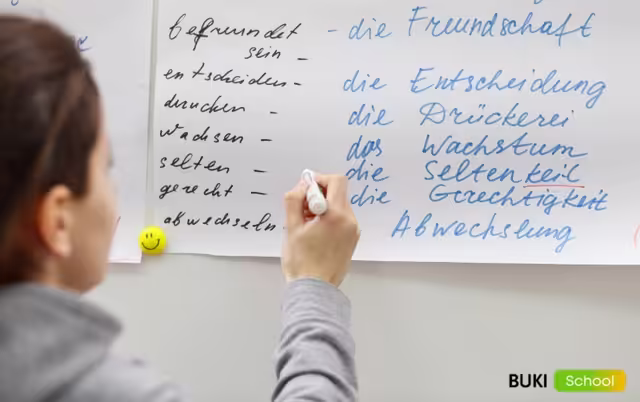 befreundet - die Freundschaft
sein -
entscheiden - die Entscheidung
drucken - die Drückerei
wachsen - das Wachstum
selten - die Seltenkeit
gerecht - die Gerechtigkeit
abwechseln Abwechslung
BUKI School